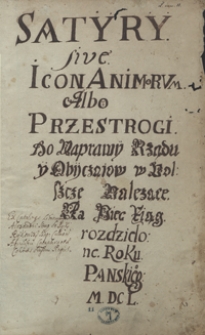 SATYRY.
sive.
ICON ANIMORVM
Albo
PRZESTROGI.
Do Naprawy Rządu
y Obyczaiow w Pol
szcze Należące.
Na Piec Xiąg.
rozdzielo
ne. Roku
PANSKIEgo
M DC L